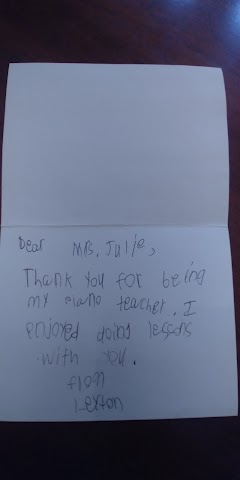 Dear Mrs. Julie,
Thank you for being
my piano teacher. I
enjoyed doing lessons
with you.
from
Lexton